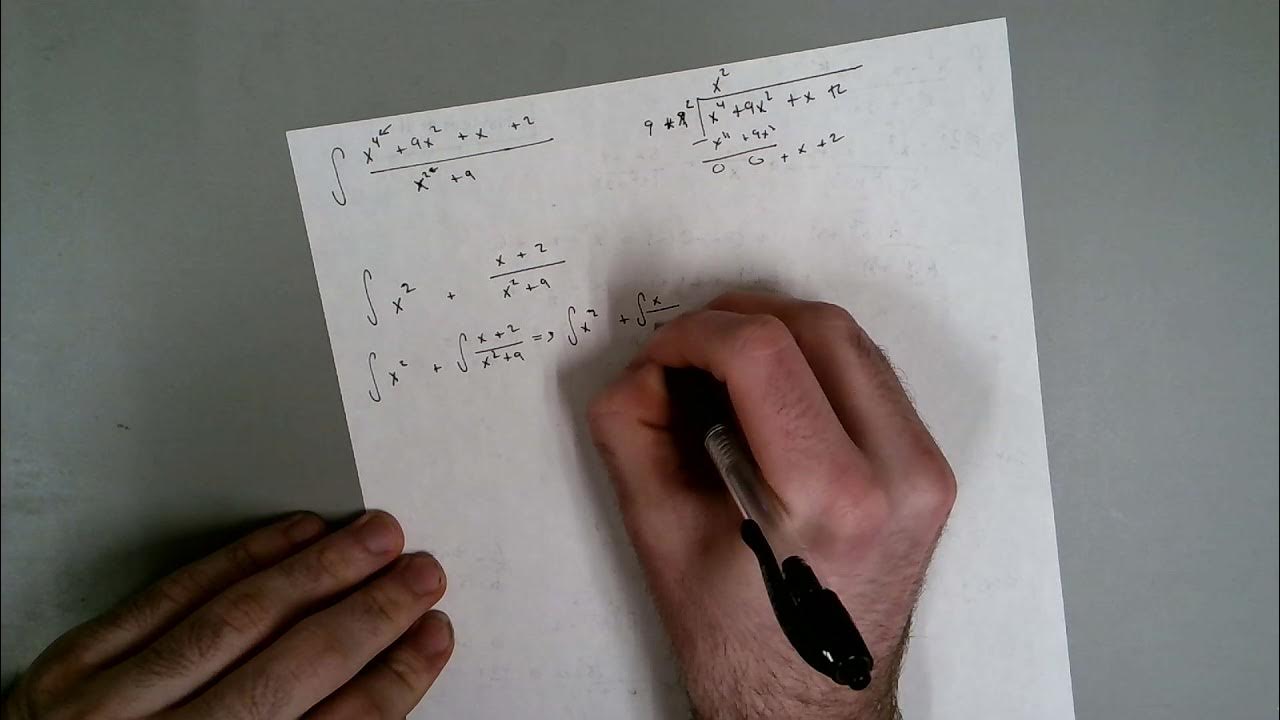 ∫ (x⁴ + 9x² + x + 2)/(x² + 9)
x²
x⁴ + 9x² + x + 2
− x⁴ + 9x²
0 0 + x + 2
∫ x² + (x + 2)/(x² + 9)
∫ x² + ∫ (x + 2)/(x² + 9) => ∫ x² + ∫ x